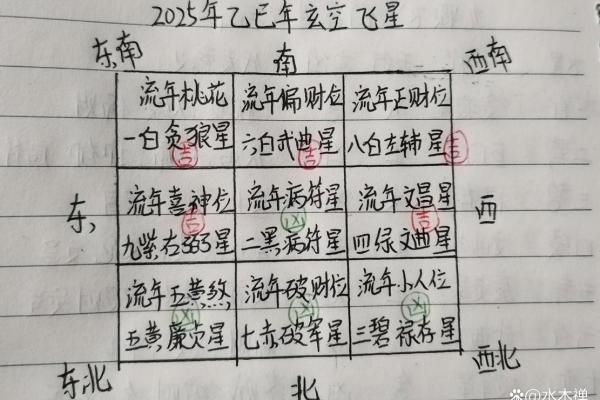 2025年乙巳年玄空飞星
东南 南 西南
流年桃花 流年偏财位 流年正财位
一白贪狼星 六白武曲星 八白左辅星
吉 吉 吉
东 西
流年喜神位 流年病符星 流年文昌星
吉 凶 吉
九紫右弼星 二黑病符星 四绿文曲星
流年五黄煞 流年破财位 流年小人位
凶 凶 凶
五黄廉贞星 七赤破军星 三碧禄存星
东北 北 西北
@水木禅